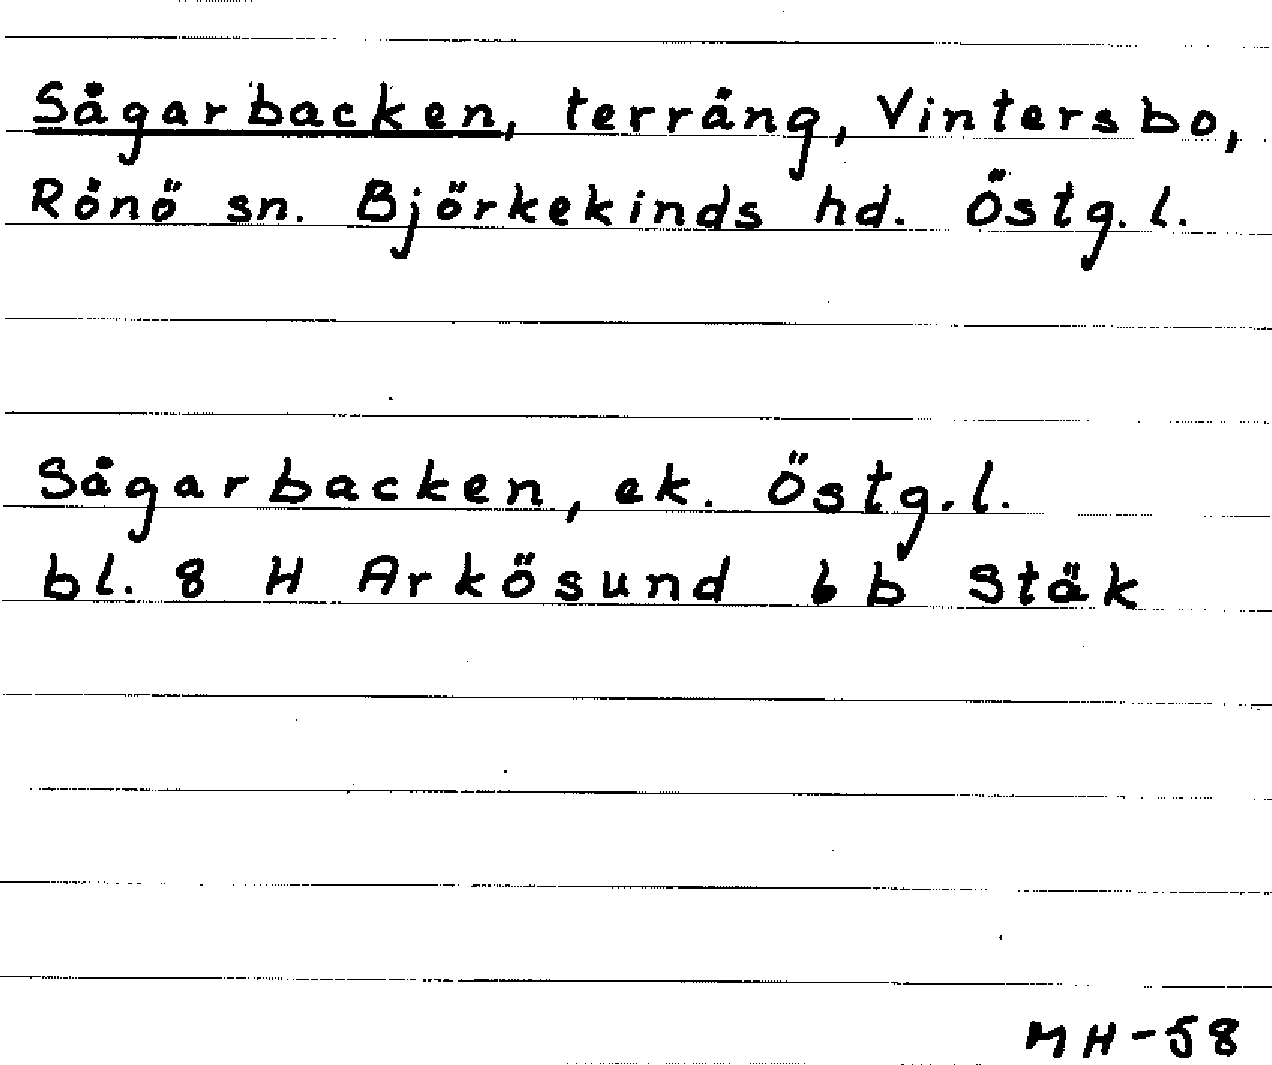 Sågarbacken, terräng, Vintersbo,
Rönö sn. Björkekinds hd. Östg.l.
Sågarbacken, ek. Östg.l.
bl. 8 H Arkösund 6 b Stäk
MH-58